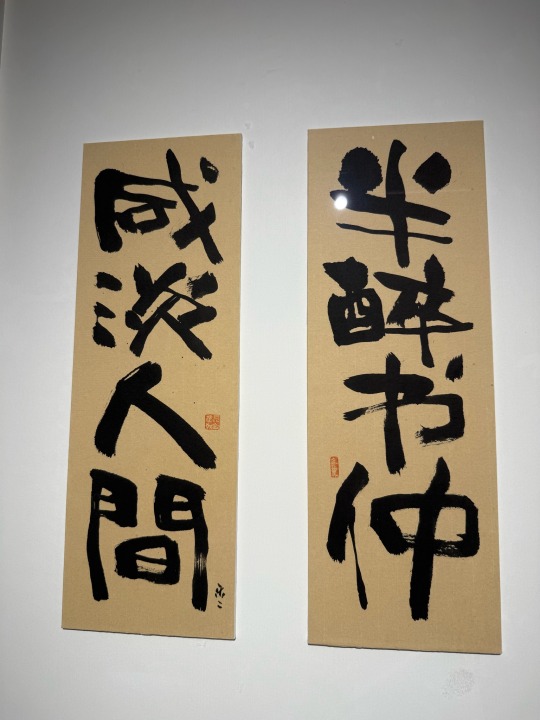 半醉书仲
咸淡人間